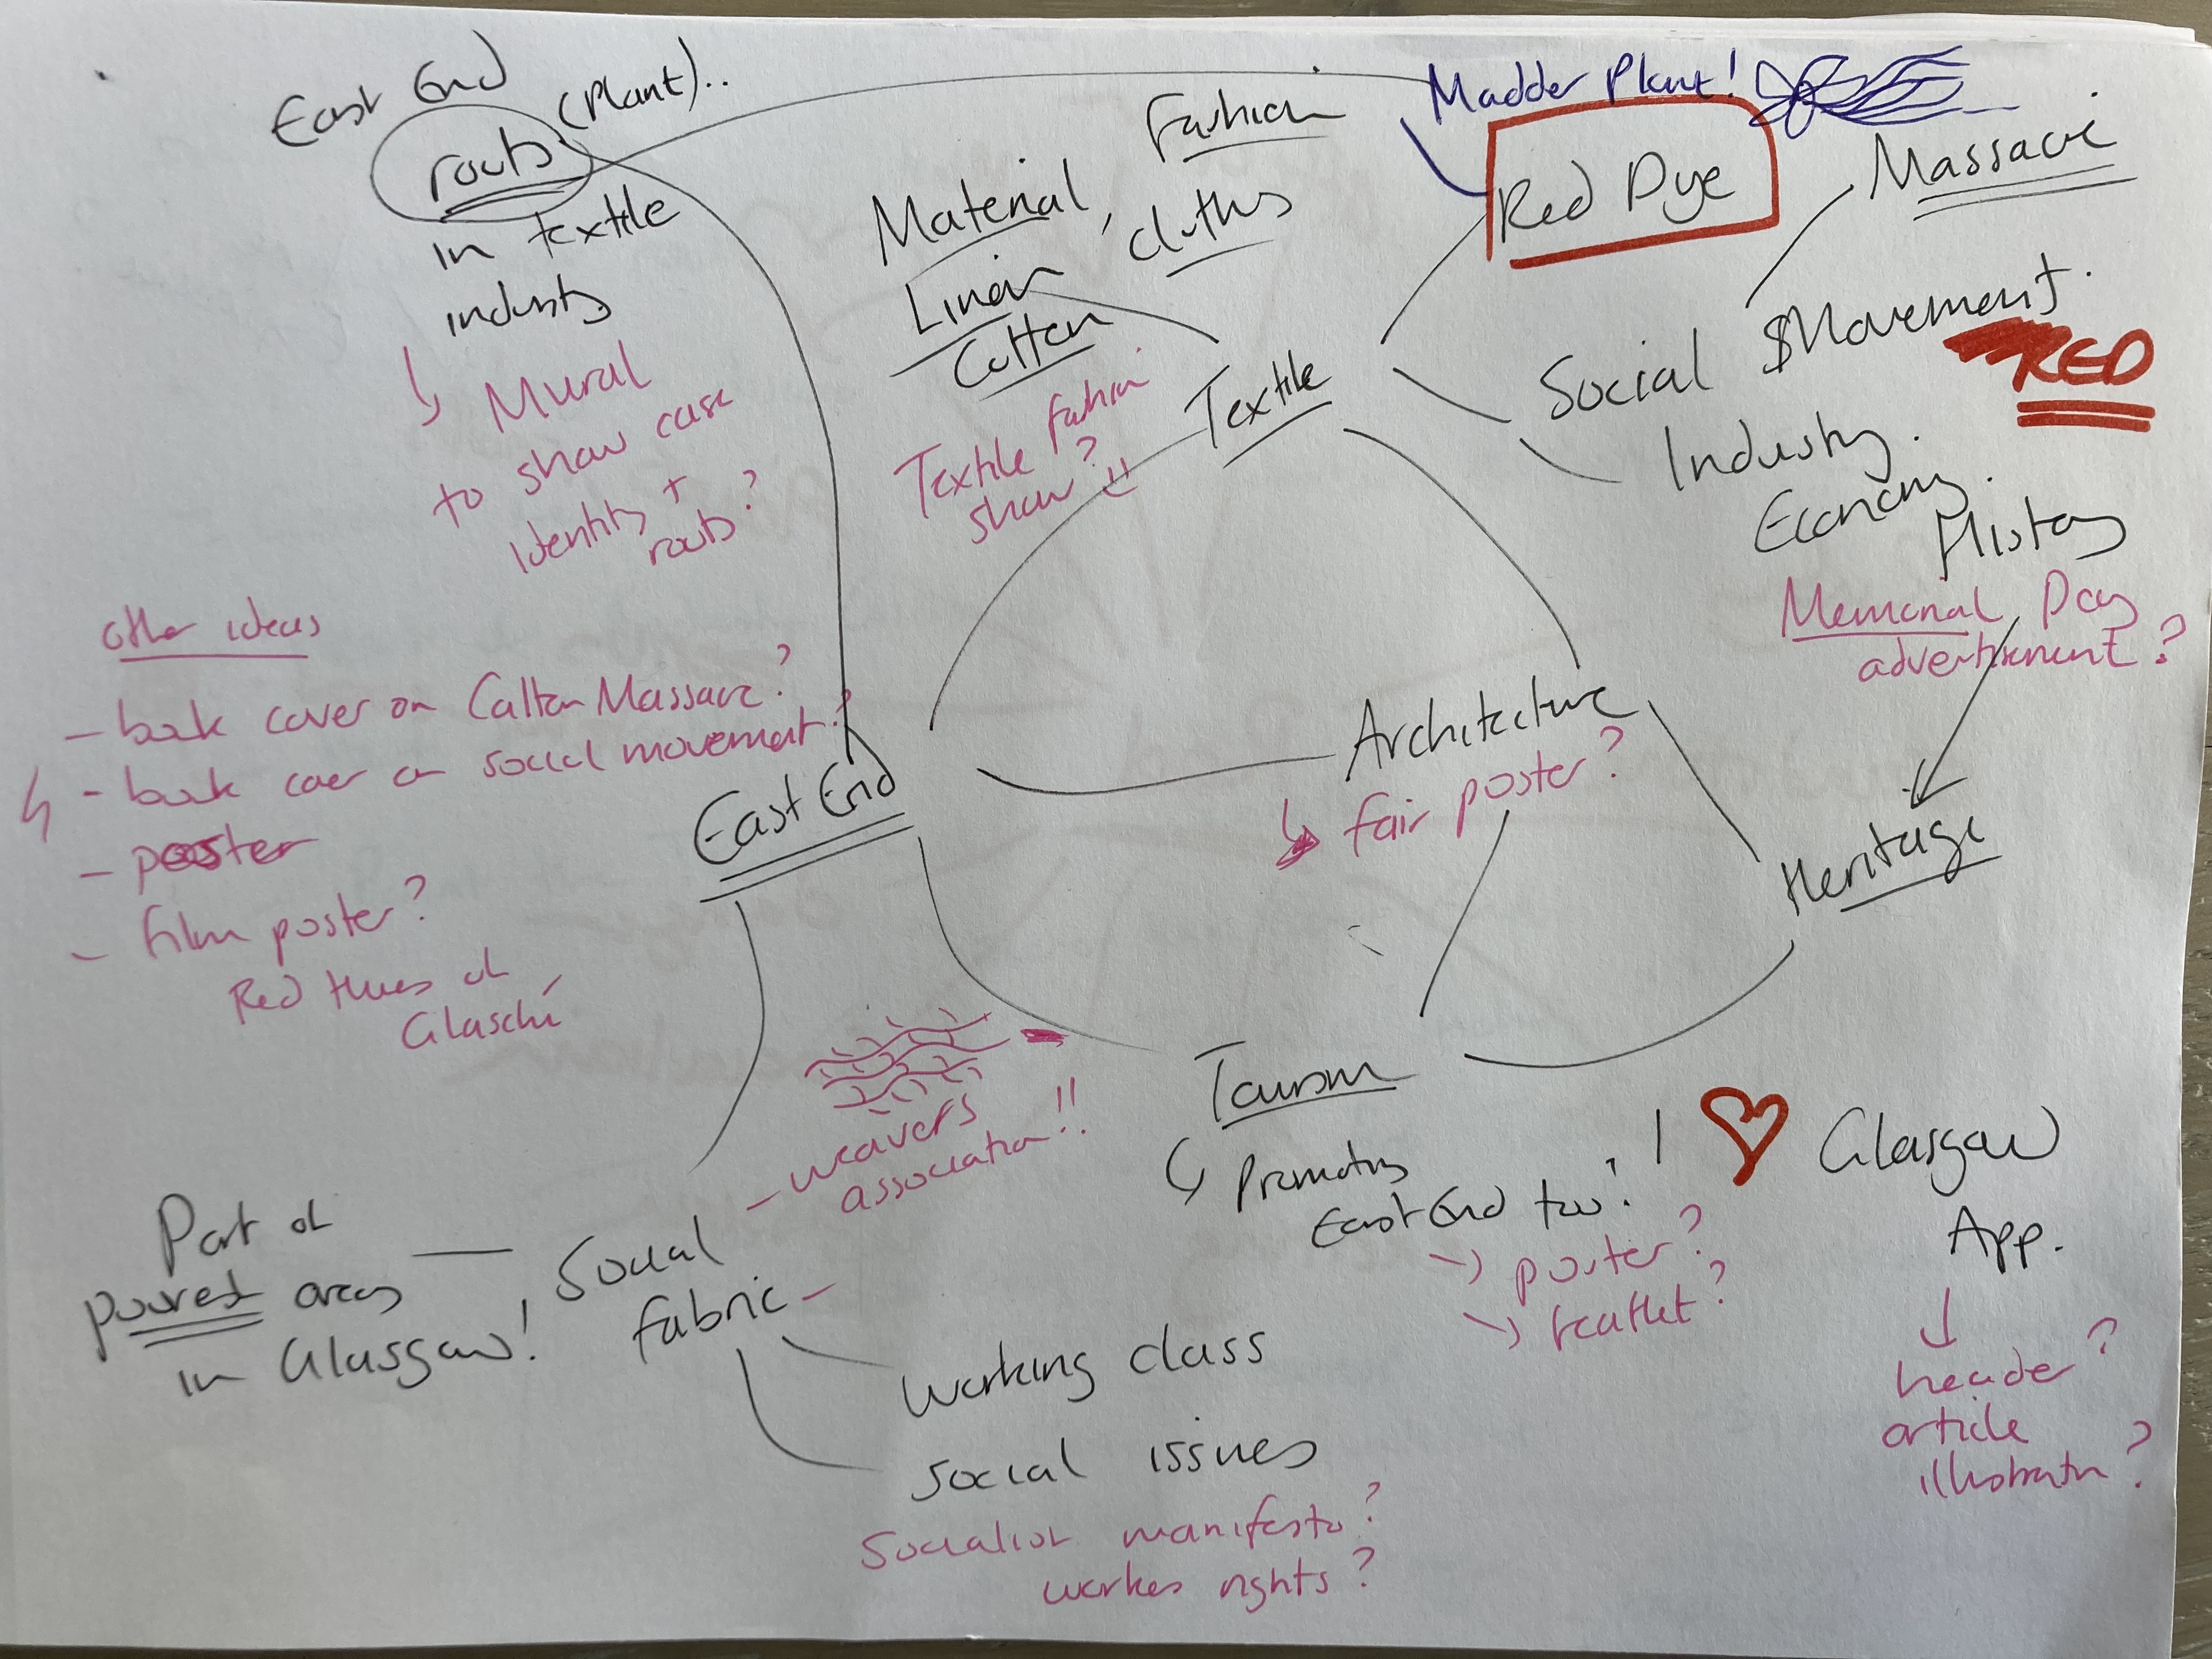 East End
roots (Plant)..
in textile
industry
Mural
to show case
identity +
roots?
Fashion
Material,
cloths
Linen
Cotton
Textile fashion
show?
Textile
Madder Plant!
Red Dye
Massacre
Social Movement.
RED
Industry.
Economy.
History
Memorial Day
advertisement?
other ideas
- book cover on Calton Massacre?
- book cover on social movement?
- poster
- film poster?
Red
Glaschú
East End
Architecture
fair poster?
Heritage
Tourism
Promoting
East End too!
poster?
leaflet?
I Glasgow
App.
header?
article
illustration?
- weavers
association!!
Part of
poorest areas
in Glasgow!
Social
fabric
working class
social issues
Socialist manifesto?
workers rights?